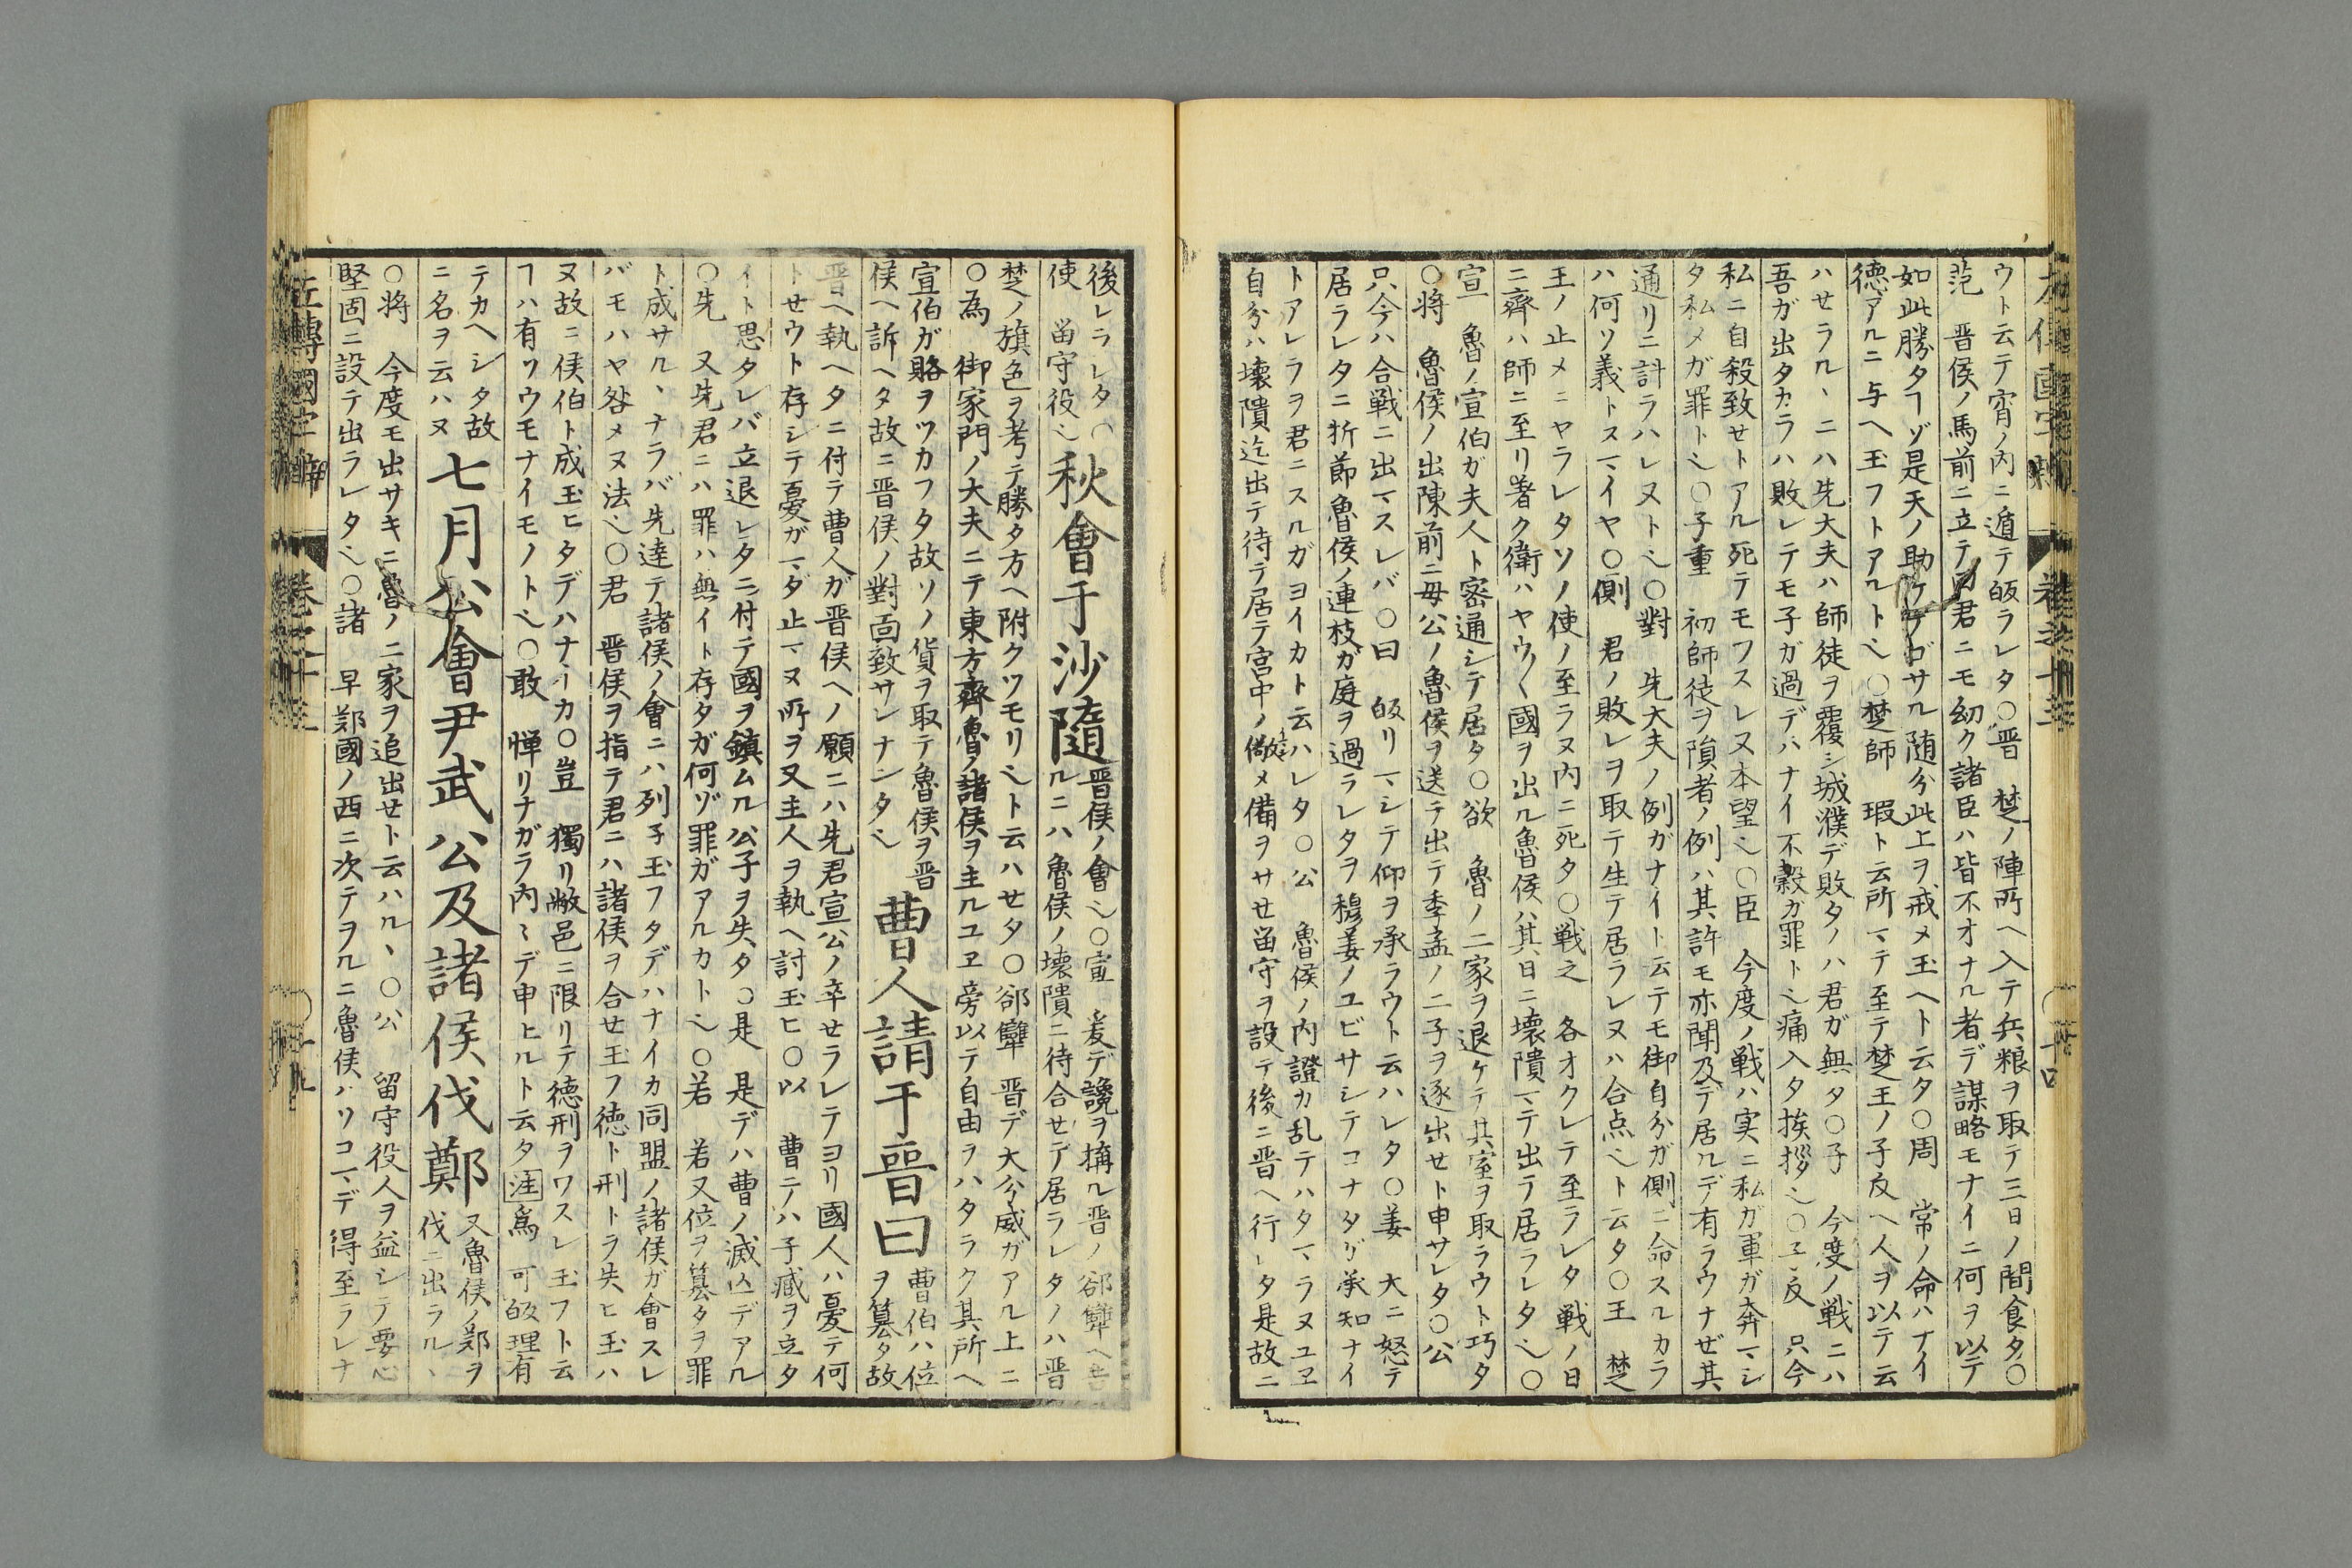 ウト云テ宵ノ内ニ遁テ皈ラレタ○晋 楚ノ陣所ヘ入テ兵粮ヲ取テ三日ノ間食タ○
范 晋侯ノ馬前ニ立テ君ニモ幼ク諸臣ハ皆不才ナル者デ謀略モナイニ何ヲ以テ
如此勝タヿゾ是天ノ助ケデゴサル随分此上ヲ戒メ玉ヘト云タ○周 常ノ命ハナイ
徳アルニ与ヘ玉フトアルト〻○楚師 瑕ト云所マテ至テ楚王ノ子反ヘ人ヲ以テ云
ハセラル、ニハ先大夫ハ師徒ヲ覆シ城濮デ敗タノハ君ガ無タ○子 今度ノ戦ニハ
吾ガ出タカラハ敗レテモ子ガ過デハナイ不穀ガ罪ト〻痛入タ挨拶〻○子反 只今
私ニ自殺致セトアル死テモワスレヌ本望〻○臣 今度ノ戦ハ実ニ私ガ軍ガ奔マシ
タ私メガ罪ト〻○子重 初師徒ヲ隕者ノ例ハ其許モ亦聞及デ居ルデ有ラウナゼ其
通リニ計ラハレヌト〻○對 先大夫ノ例ガナイト云テモ御自分ガ側ニ命スルカラ
ハ何ソ義トスマイヤ○側 君ノ敗レヲ取テ生テ居ラレヌハ合点〻ト云タ○王 楚
王ノ止メニヤラレタソノ使ノ至ラヌ内ニ死タ○戦之 各オクレテ至ラレタ戦ノ日
ニ齊ハ師ニ至リ著ク衛ハヤウ〱國ヲ出ル魯侯ハ其日ニ壊隤マテ出テ居ラレタ〻○
宣 魯ノ宣伯ガ夫人ト密通シテ居タ○欲 魯ノ二家ヲ退ケテ其室ヲ取ラウト巧タ
○将 魯侯ノ出陳前ニ毋公ノ魯侯ヲ送テ出テ季孟ノ二子ヲ逐出セト申サレタ○公
只今ハ合戦ニ出マスレバ○曰 皈リマシテ仰ヲ承ラウト云ハレタ○姜 大ニ怒テ
居ラレタニ折節魯侯ノ連枝ガ庭ヲ過ラレタヲ穆姜ノユビサシテコナタガ承知ナイ
トアレラヲ君ニスルガヨイカト云ハレタ○公 魯侯ノ内證カ乱テハタマラヌユヱ
自分ハ壊隤迄出テ待テ居テ宮中ノ儆メ備ヲサセ畄守ヲ設テ後ニ晋ヘ行レタ是故ニ
後レラレタ○
使 畄守役〻
秋會于沙隨
晋侯ノ會〻○宣 爰デ讒ヲ搆ル晋ノ郤犨ヘ
ルニハ魯侯ノ壊隤ニ待合セテ居ラレタノハ晋
楚ノ旗色ヲ考テ勝タ方ヘ附クツモリ〻ト云ハセタ○郤犨 晋デ大分威ガアル上ニ
○為 御家門ノ大夫ニテ東方齊魯ノ諸侯ヲ主ルユヱ旁以テ自由ヲハタラク其所ヘ
宣伯ガ賂ヲツカフタ故ソノ貨ヲ取テ魯侯ヲ晋
侯ヘ訴ヘタ故ニ晋侯ノ對面致サレナンタ〻
曹人請于晋曰
曹伯ハ位
ヲ簒タ故
晋ヘ執ヘタニ付テ曹人ガ晋侯ヘノ願ニハ先君宣公ノ卒セラレテヨリ國人ハ憂テ何
トセウト存シテ憂ガマダ止マヌ所ヲ又主人ヲ執ヘ討玉ヒ○以 曹ニハ子臧ヲ立タ
イト思タレバ立退レタニ付テ國ヲ鎮ムル公子ヲ失タ○是 是デハ曹ノ滅亡デアル
○先 又先君ニハ罪ハ無イト存タガ何ゾ罪ガアルカト〻○若 若又位ヲ簒タヲ罪
ト成サル、ナラバ先達テ諸侯ノ會ニハ列子玉フタデハナイカ同盟ノ諸侯ガ會スレ
バモハヤ咎メヌ法〻○君 晋侯ヲ指テ君ニハ諸侯ヲ合セ玉フ徳ト刑トラ失ヒ玉ハ
ヌ故ニ侯伯ト成玉ヒタデハナイカ○豈 獨リ敝邑ニ限リテ徳刑ヲワスレ玉フト云
ヿハ有ソウモナイモノト〻○敢 憚リナガラ内〻デ申ヒルト云タ 注 爲 可皈理有
テカヘシタ故
ニ名ヲ云ハヌ
七月公會尹武公及諸侯伐鄭
又魯侯ノ鄭ヲ
伐ニ出ラル、
○将 今度モ出サキニ魯ノ二家ヲ追出セト云ハル、○公 留守役人ヲ益シテ要心
堅固ニ設テ出ラレタ〻○諸 早鄭國ノ西ニ次テヲルニ魯侯ハソコマデ得至ラレナ
左傳國字辯 巻之十三 十九